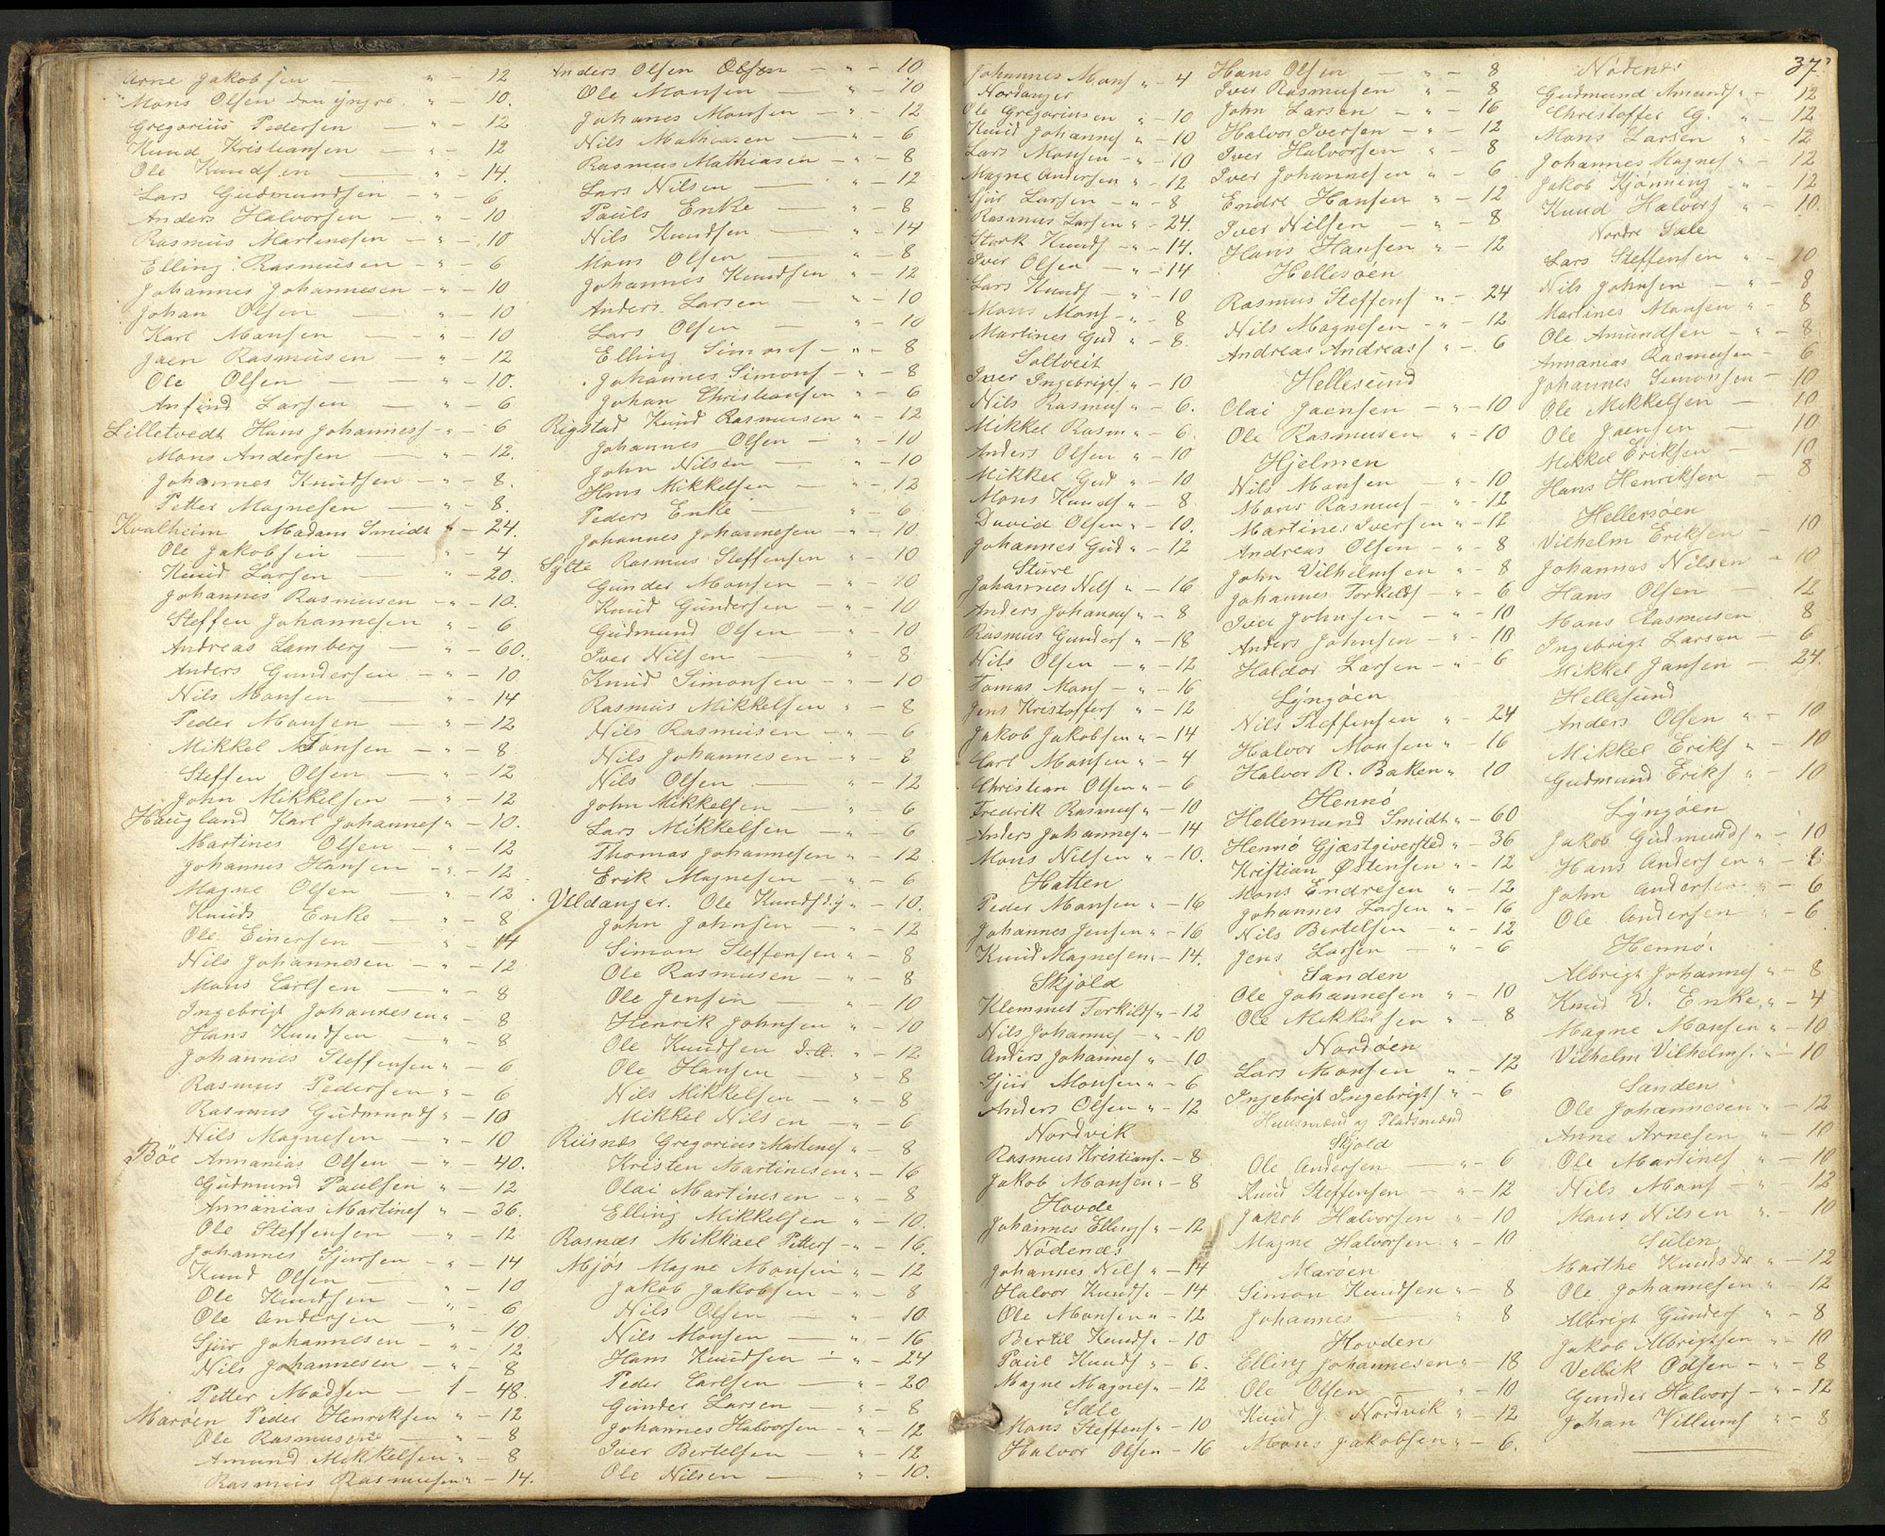 Arne Jakobsen — " — 12
Mons Olsen den yngre " — 10.
Gregorius Pedersen — " — 12
Knud Kristiansen — " — 12
Ole Knudsen — " — 14.
Lars Gudmundsen — " — 6
Anders Halvorsen — " — 10
Rasmus Martinesen — " — 10
Elling Rasmusen — " — 6
Johannes Johannesen — " — 10
Johan Olsen — " — 10
Karl Monsen — " — 10
Jaen Rasmusen — " — 12
Ole Olsen — " — 10.
Anfind Larsen — " — 6
Lilletvedt Hans Johannesf — " — 6
Mons Andersen — " — 12.
Johannes Knudsen — " — 8.
Petter Magnesen — " — 8.
Kvalheim Madam Smidt " — 24.
Ole Jakobsen — " — 4
Knud Larsen — " — 20.
Johannes Rasmusen — " — 10.
Steffen Johannesen " — 6
Andreas Lamberg — " — 60.
Anders Gundersen — " — 10
Nils Monsen — " — 14
Peder Monsen — " — 12
Mikkel Monsen — " — 8.
Steffen Olsen — " — 12
John Mikkelsen — " — 12
Haugland Karl Johannesf " — 10.
Martines Olsen " — 12
Johannes Hansen — " — 12
Magne Olsen — " — 12
Knuds Enke — " — 8
Ole Einersen — " — 14
Nils Johannesen — " — 12
Mons Carlsen — " — 8
Ingebrigt Johannesen " — 8
Hans Knudsen — " — 8
Johannes Steffensen " — 6
Rasmus Pedersen " — 6
Rasmus Gudmundsf " — 10
Nils Magnesen — " — 10
Böe Annanias Olsen — " — 40.
Gudmund Paulsen " — 12
Annanias Martinesf " — 36.
Ole Steffensen — " — 12
Johannes Sjursen — " — 14
Knud Olsen — " — 10
Ole Knudsen — " — 6
Ole Andersen — " — 10
Sjur Johannesen — " — 12
Nils Johannesen — " — 8
Petter Madsen — 1 — 48.
Marøen Peder Henriksen " — 12
Ole Rasmusen " — 8
Amund Mikkelsen " — 8
Rasmus Rasmusen " — 14.
Anders Olsen Olsen — " — 10
Ole Monsen — " — 10
Johanes Monsen — " — 12
Nils Mathiasen — " — 6
Rasmus Mathiasen — " — 8
Lars Nilsen — " — 12
Pauls Enke — " — 8
Nils Knudsen — " — 14
Mons Olsen — " — 8
Johannes Knudsen " — 12
Anders Larsen — " — 10
Lars Olsen — " — 10
Elling Simonsf — " — 8
Johannes Simonsf — " — 8
Johan Christiansen " — 6
Rigstad Knud Rasmusen " — 12
Johannes Olsen — " — 10
John Nilsen — " — 10
Hans Mikkelsen — " — 12
Peders Enke — " — 6
Johannes Johannesen " — 10.
Sylte Rasmus Steffensen " — 10
Gunder Monsen — " — 10
Knud Gundersen — " — 10
Gudmund Olsen — " — 10
Iver Nilsen — " — 8
Knud Simonsen — " — 10
Rasmus Mikkelsen " — 8
Nils Rasmusen — " — 6
Nils Johannesen — " — 8
Nils Olsen — " — 12
John Mikkelsen — " — 6
Lars Mikkelsen — " — 6
Thomas Johannesen " — 12
Erik Magnesen — " — 6
Uldanger. Ole Knudsf d.y " — 10.
John Johnsen — " — 12
Simon Steffensen " — 8
Ole Rasmusen — " — 8
Ole Jensen — " — 10
Henrik Johnsen " — 10
Ole Knudsen d.æ. " — 12
Ole Hansen — " — 8
Nils Mikkelsen — " — 8
Mikkel Nilsen — " — 6
Riisnæs Gregorius Martinesf " — 8
Kristen Martinesen " — 16
Olai Martinesen — " — 8
Elling Mikkelsen " — 10.
Rosnæs Mikkael Pettersf — " — 16.
Mjøs Magne Monsen " — 12
Jakob Jakobsen — " — 8
Nils Olsen — " — 10
Nils Monsen — " — 16
Hans Knudsen — " — 24
Peder Carlsen — " — 20
Gunder Larsen — " — 8
Johannes Halvorsen — " — 12
Iver Bertelsen " — 12
Ole Nilsen — " — 10.
Johannes Monsf " — 4
Nordanger
Ole Gregoriusen " — 10
Knud Johannesf " — 10
Lars Monsen — " — 10
Magne Andersen " — 12
Sjur Larsen — " — 8
Rasmus Larsen " — 24.
Stork Knudsf — " — 14.
Iver Olsen — " — 14
Lars Knudsf — " — 10
Mons Monsf — " — 8
Martines Gud " — 8.
Soltveit
Iver Ingebrigtsf " — 10
Nils Rasmusf " — 6.
Mikkel Rasm " — 6
Anders Olsen " — 10
Mikkel Gud " — 10
Mons Knudsf " — 8
David Olsen " — 10.
Johannes Gud " — 12
Sture
Johannes Nilsf " — 16
Anders Johannesf " — 8
Rasmus Gundersf " — 18
Nils Olsen — " — 12
Tomas Monsf — " — 16
Jens Kristoffersf " — 12
Jakob Jakobsen " — 14
Carl Monsen " — 4
Christian Olsen " — 6
Fredrik Rasmusf " — 10
Anders Johannesf " — 14
Mons Nilsen " — 10.
Hatten
Peder Monsen " — 16
Johannes Jensen " — 16
Knud Magnesen " — 14.
Skjold
Klemmet Torkildsf " — 12
Nils Johannesf " — 10
Anders Johannesf " — 10
Sjur Monsen " — 6
Anders Olsen " — 12
Nordvik
Rasmus Kristiansf " — 8
Jakob Monsen " — 8
Hovde
Johannes Ellingsf " — 12
Nödenæs
Johannes Nilsf " — 14
Halvor Knudsf " — 14
Ole Monsen " — 12
Bertil Knudsf " — 10
Paul Knudsf " — 6.
Magne Magnesf " — 12
Sæle
Mons Steffensf " — 10
Halvor Olsen — 16
Hans Olsen — " — 8
Iver Rasmusen " — 8
John Larsen — " — 16
Halvor Iversen — " — 12
Iver Halvorsen " — 8
Iver Johannesen " — 6
Endre Hansen " — 12
Iver Nilsen — " — 8
Hans Hansen " — 12
Hellesøen
Rasmus Steffensf " — 24
Nils Magnesen — " — 12
Andreas Andreasf " — 6
Hellesund
Olai Jaensen — " — 10
Ole Rasmusen " — 10
Hjelmen
Nils Monsen " — 10
Mons Rasmusf " — 12
Martines Iversen " — 12
Andreas Olsen — " — 8
John Vilhelmsen " — 8
Johannes Torkildsf — " — 6
Iver Johnsen — " — 10
Anders Johnsen " — 10
Haldor Larsen — " — 6
Lyngøen
Nils Steffensen " — 24
Halvor Monsen " — 16
Halvor R. Bakken " 10
Hennö
Hellemund Smidt " — 60
Hennö Gjæstgiversted " — 36
Kristian Østensen " — 12
Mons Endresen " — 12
Johannes Larsen " — 16
Nils Bertelsen " — 12
Jens Larsen — " — 6
Sanden
Ole Johannesen " — 10
Ole Mikkelsen " — 8
Nordøen
Lars Monsen " — 12
Ingebrigt Ingebrigtsf " — 6
Huusmænd og Pladsmænd
Skjold
Ole Andersen — " — 6
Knud Steffensen — " — 12
Jakob Halvorsen " — 10
Magne Halvorsen " — 10
Marøen
Simon Knudsen " — 8
Johannes — " 8
Hovden
Elling Johannesen " — 18
Ole Olsen " — 10
Knud J. Nordvik " — 12
Mons Jakobsen " — 6.
37.
Nödenæs
Gudmund Amundsf " — 12
Christoffer Eg. " — 12
Mons Larsen " — 12
Johannes Magnesf " — 12
Jakob Kjønning " — 12
Knud Halvorsf " — 10.
Nordre Sæle
Lars Steffensen " — 10
Nils Johnsen — " — 8
Martines Monsen " — 8
Ole Amundsen — " — 8
Annanias Rasmusen — 6
Johannes Simonsen — 10
Ole Mikkelsen — 10
Ole Jaensen — 10
Mikkel Eriksen — 10
Hans Henriksen — 8
Hellesøen
Vilhelm Eriksen — 10
Johannes Nilsen — 10
Hans Olsen — 12
Mons Rasmusen 8
Ingebrigt Larsen — 6
Mikkel Jansen — 24.
Hellesund
Anders Olsen " — 10
Mikkel Eriksf " — 10
Gudmund Eriksf " — 10
Lyngøen
Jakob Gudmundsf " — 10
Hans Andersen " — 8
John Andersen " — 6
Ole Andersen " — 6
Hennö.
Albrigt Johannesf " — 8
Knud V. Enke " — 4
Magne Monsen " — 10
Vilhelm Vilhelmsf. " — 10
Sanden
Ole Johannesen " — 12
Anne Arnesen " — 10
Ole Martinesf " — 10
Nils Monsf — " — 12
Mons Nilsen " — 10
Sulen
Marthe Knudsdr " — 12
Ole Johannesen " — 12
Albrigt Gundersf " — 8
Jakob Albrigtsen " — 10
Vellik Odsen — " — 8
Gunder Halvorsf — " — 12
Johan Villumsf " — 8